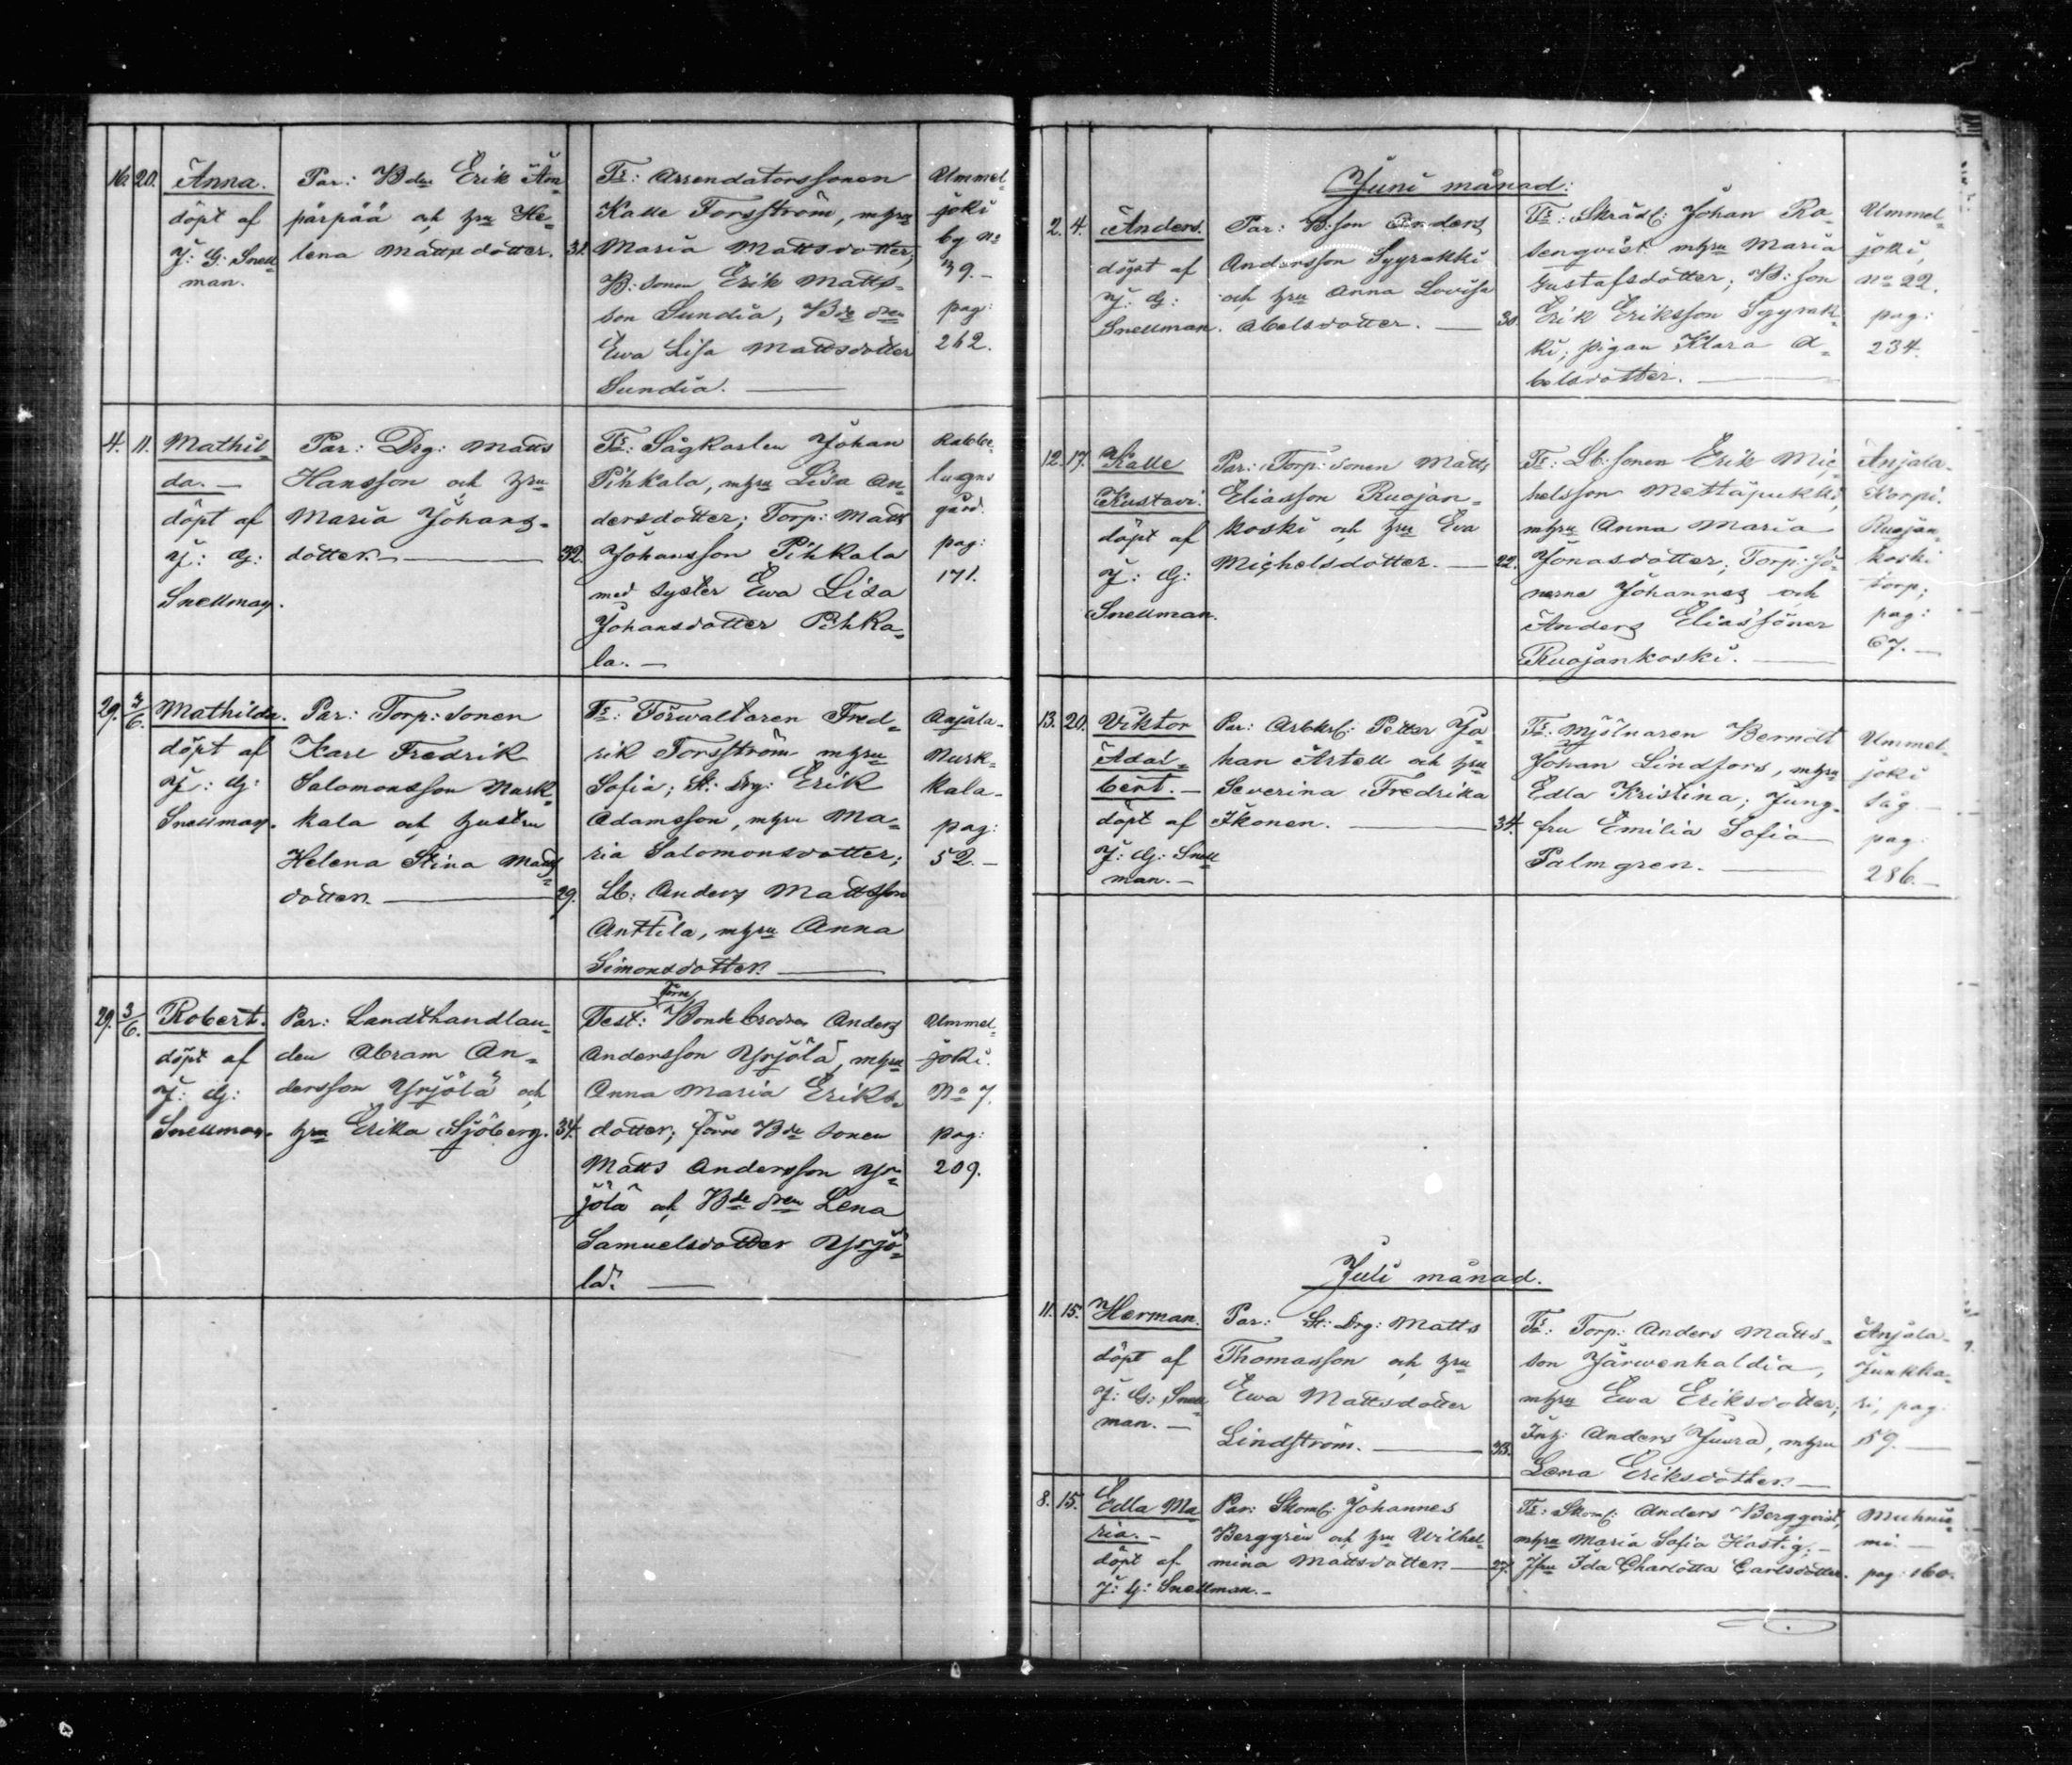 16. 20. Anna.
döpt af
J: G: Snell=
man.
Par: Bden Erik Äm=
pärpää och hru He=
lena Mattsdotter. 31.
Fr: Arrendatorssonen
Kalle Forsström, mhru
Maria Mattsdotter,
B: sonen Erik Matts=
son Sundia, Bde drn
Ewa Lisa Mattsdotter
Sundia.
Ummel=
joki
by No
39.
pag:
262.
4. 11. Mathil=
da.
döpt af
J: G:
Snellman.
Par: Drg: Matts
Hansson och hru
Maria Johans=
dotter. 32.
Fr: Sågkarlen Johan
Pihkala, mhru Lisa An=
dersdotter; Torp: Matts
Johansson Pihkala
med syster Ewa Lisa
Johansdotter Pihka=
la.
Rabbe=
lugns
gård.
pag:
171.
29. 3/6. Mathilda.
döpt af
J: G:
Snellman.
Par: Torp: sonen
Karl Fredrik
Salomonsson Mark=
kala och hustru
Helena Stina Matts=
dotter. 29.
Fr: Förwaltaren Fred=
rik Forsström mhru
Sofia; St: Drg: Erik
Adamsson, mhru Ma=
ria Salomonsdotter;
Lb: Anders Mattsson
Anttila, mhru Anna
Simonsdotter.
Anjala=
Murk=
kala.
pag:
52.
29. 3/6. Robert.
döpt af
J: G:
Snellman.
Par: Landthandlan=
den Abram An=
dersson Yrjölä och
hru Erika Sjöberg. 34.
Test: förre Bondebrodren Anders
Andersson Yrjölä, mhru
Anna Maria Eriks=
dotter; förre Bde sonen
Matts Andersson Yr=
jölä och Bde drn Lena
Samuelsdotter Yrjö=
lä.
Ummel=
joki.
No 7.
pag:
209.
Juni månad:
2. 4. Anders.
döpt af
J: G:
Snellman.
Par: B: son Anders
Andersson Syyrakki
och hru Anna Lovisa
Abelsdotter. 30.
Fr: Skrädd: Johan Ro=
senqvist mhru Maria
Gustafsdotter; B: son
Erik Eriksson Syyrak=
ki; pigan Klara A=
belsdotter.
Ummel=
joki,
No 22.
pag:
234.
12. 17. Kalle
Kustavi.
döpt af
J: G:
Snellman.
Par: Torp: sonen Matts
Eliasson Ruojan=
koski och hru Eva
Michelsdotter. 22.
Fr: Lb: sonen Erik Mic=
helsson Mettäpukki,
mhru Anna Maria
Jonasdotter; Torp: sö=
nerne Johannes och
Anders Eliassöner
Ruojankoski.
Anjala=
Korpi.
Ruojan=
koski
torp;
pag:
67.
13. 20. Viktor
Adal=
bert.
döpt af
J: G: Snell=
man.
Par: Arbkrl: Petter Jo=
han Artell och hru
Severina Fredrika
Ikonen. 34.
Fr: Mjölnaren Berndt
Johan Lindfors, mhru
Edla Kristina; Jung=
fru Emilia Sofia
Palmgren.
Ummel=
joki
såg.
pag:
286.
Juli månad.
11. 15. Herman.
döpt af
J: G: Snell=
man.
Par: St: Drg: Matts
Thomasson och hru
Ewa Mattsdotter
Lindström. 38.
Fr: Torp: Anders Matts=
son Järwenhaldia,
mhru Ewa Eriksdotter;
Inh: Anders Juura, mhru
Lena Eriksdotter.
Anjala=
Junkka=
ri, pag:
59.
8. 15. Edla Ma=
ria.
döpt af
J: G: Snellman.
Par: Skom: Johannes
Berggrén och hru Wilhel=
mina Mattsdotter. 27.
Fr: Skom: Anders Bergqvist,
mhru Maria Sofia Hastig;
Jfru Ida Charlotta Carlsdotter.
Muhnie=
mi.
pag: 160.